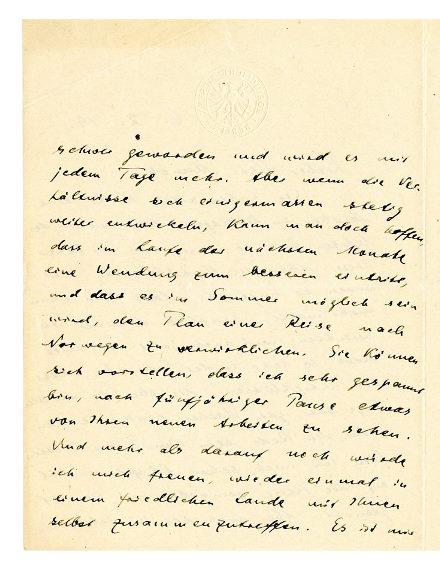 schon geworden und wird es mit
jedem Tage mehr. Aber wenn die Ver-
hältnisse sich einigermassen stetig
weiter entwickeln, kann man doch hoffen,
dass im Laufe der nächsten Monate
eine Wendung zum besseren eintritt,
und dass es im Sommer möglich sein
wird, den Plan einer Reise nach
Norwegen zu verwirklichen. Sie können
sich vorstellen, dass ich sehr gespannt
bin, nach fünfjähriger Pause etwas
von Ihren neuen Arbeiten zu sehen.
Und mehr als darauf noch würde
ich mich freuen, wieder einmal in
einem friedlichen Lande mit Ihnen
selbst zusammenzutreffen. Es ist mir